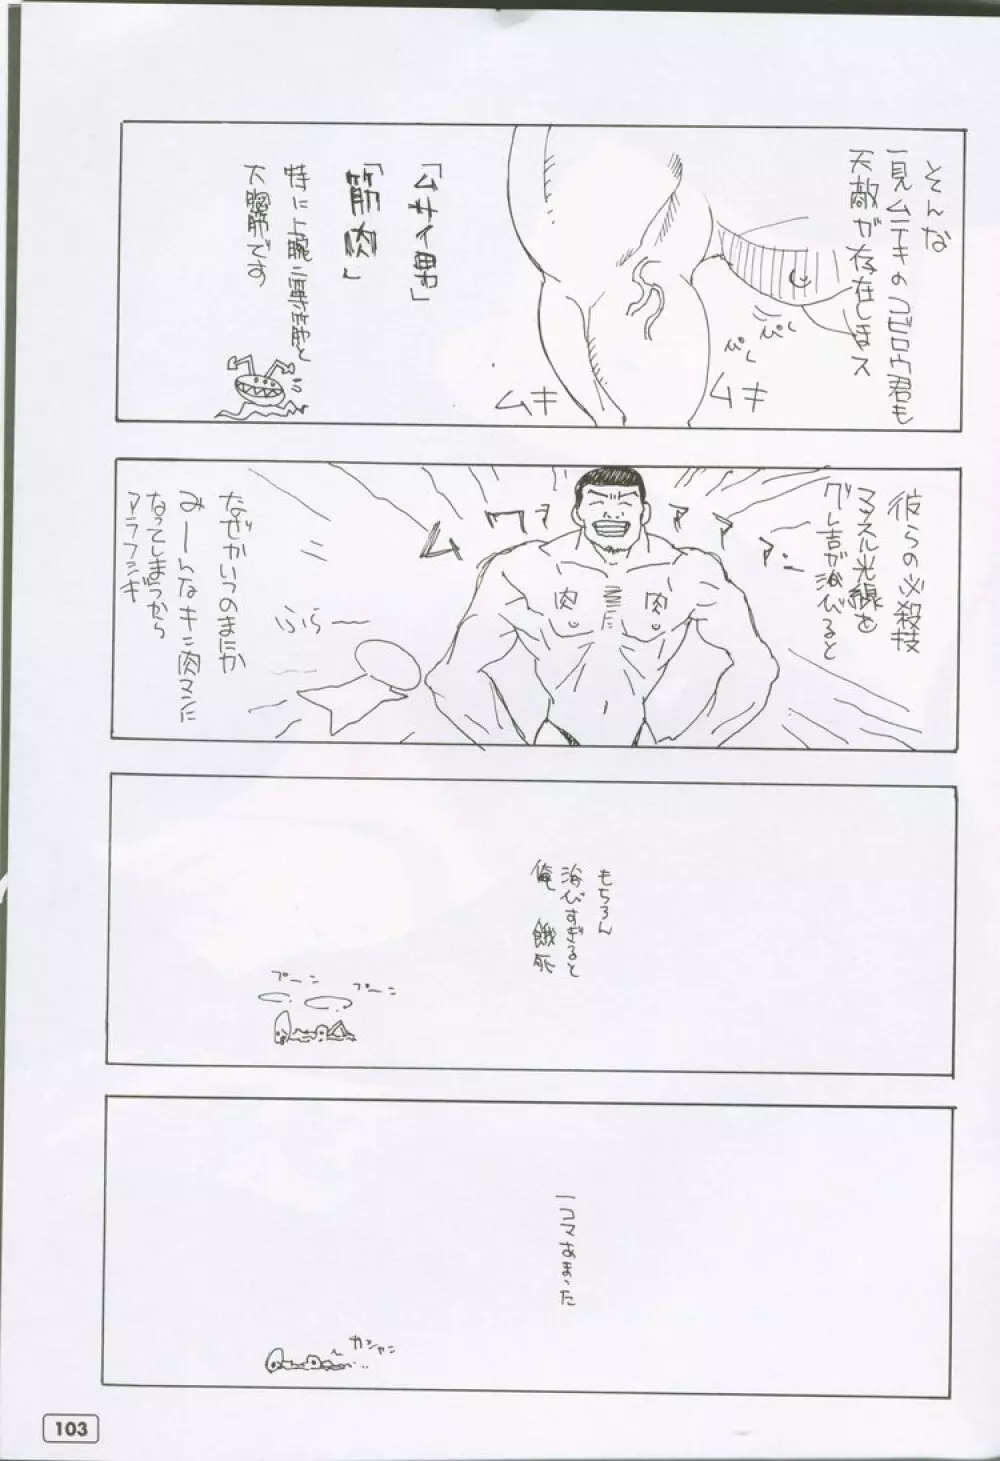 そんな
一見ムテキのコビロウ君も
天敵が存在しまス
ぴく
ぴく
ムキ
ムキ
「ムサイ男」
「筋肉」
特に上腕二等筋と
大胸筋です
彼らの必殺技
マッスル光線を
グレ吉が浴びると
ムワァァァァ
ふら〜
なぜかいつのまにか
みーんなキン肉マンに
なってしまうから
アラフシギ
肉
肉
もちろん
浴びすぎると
俺 餓死
プーン
プーン
一コマあまった
カシャン
103